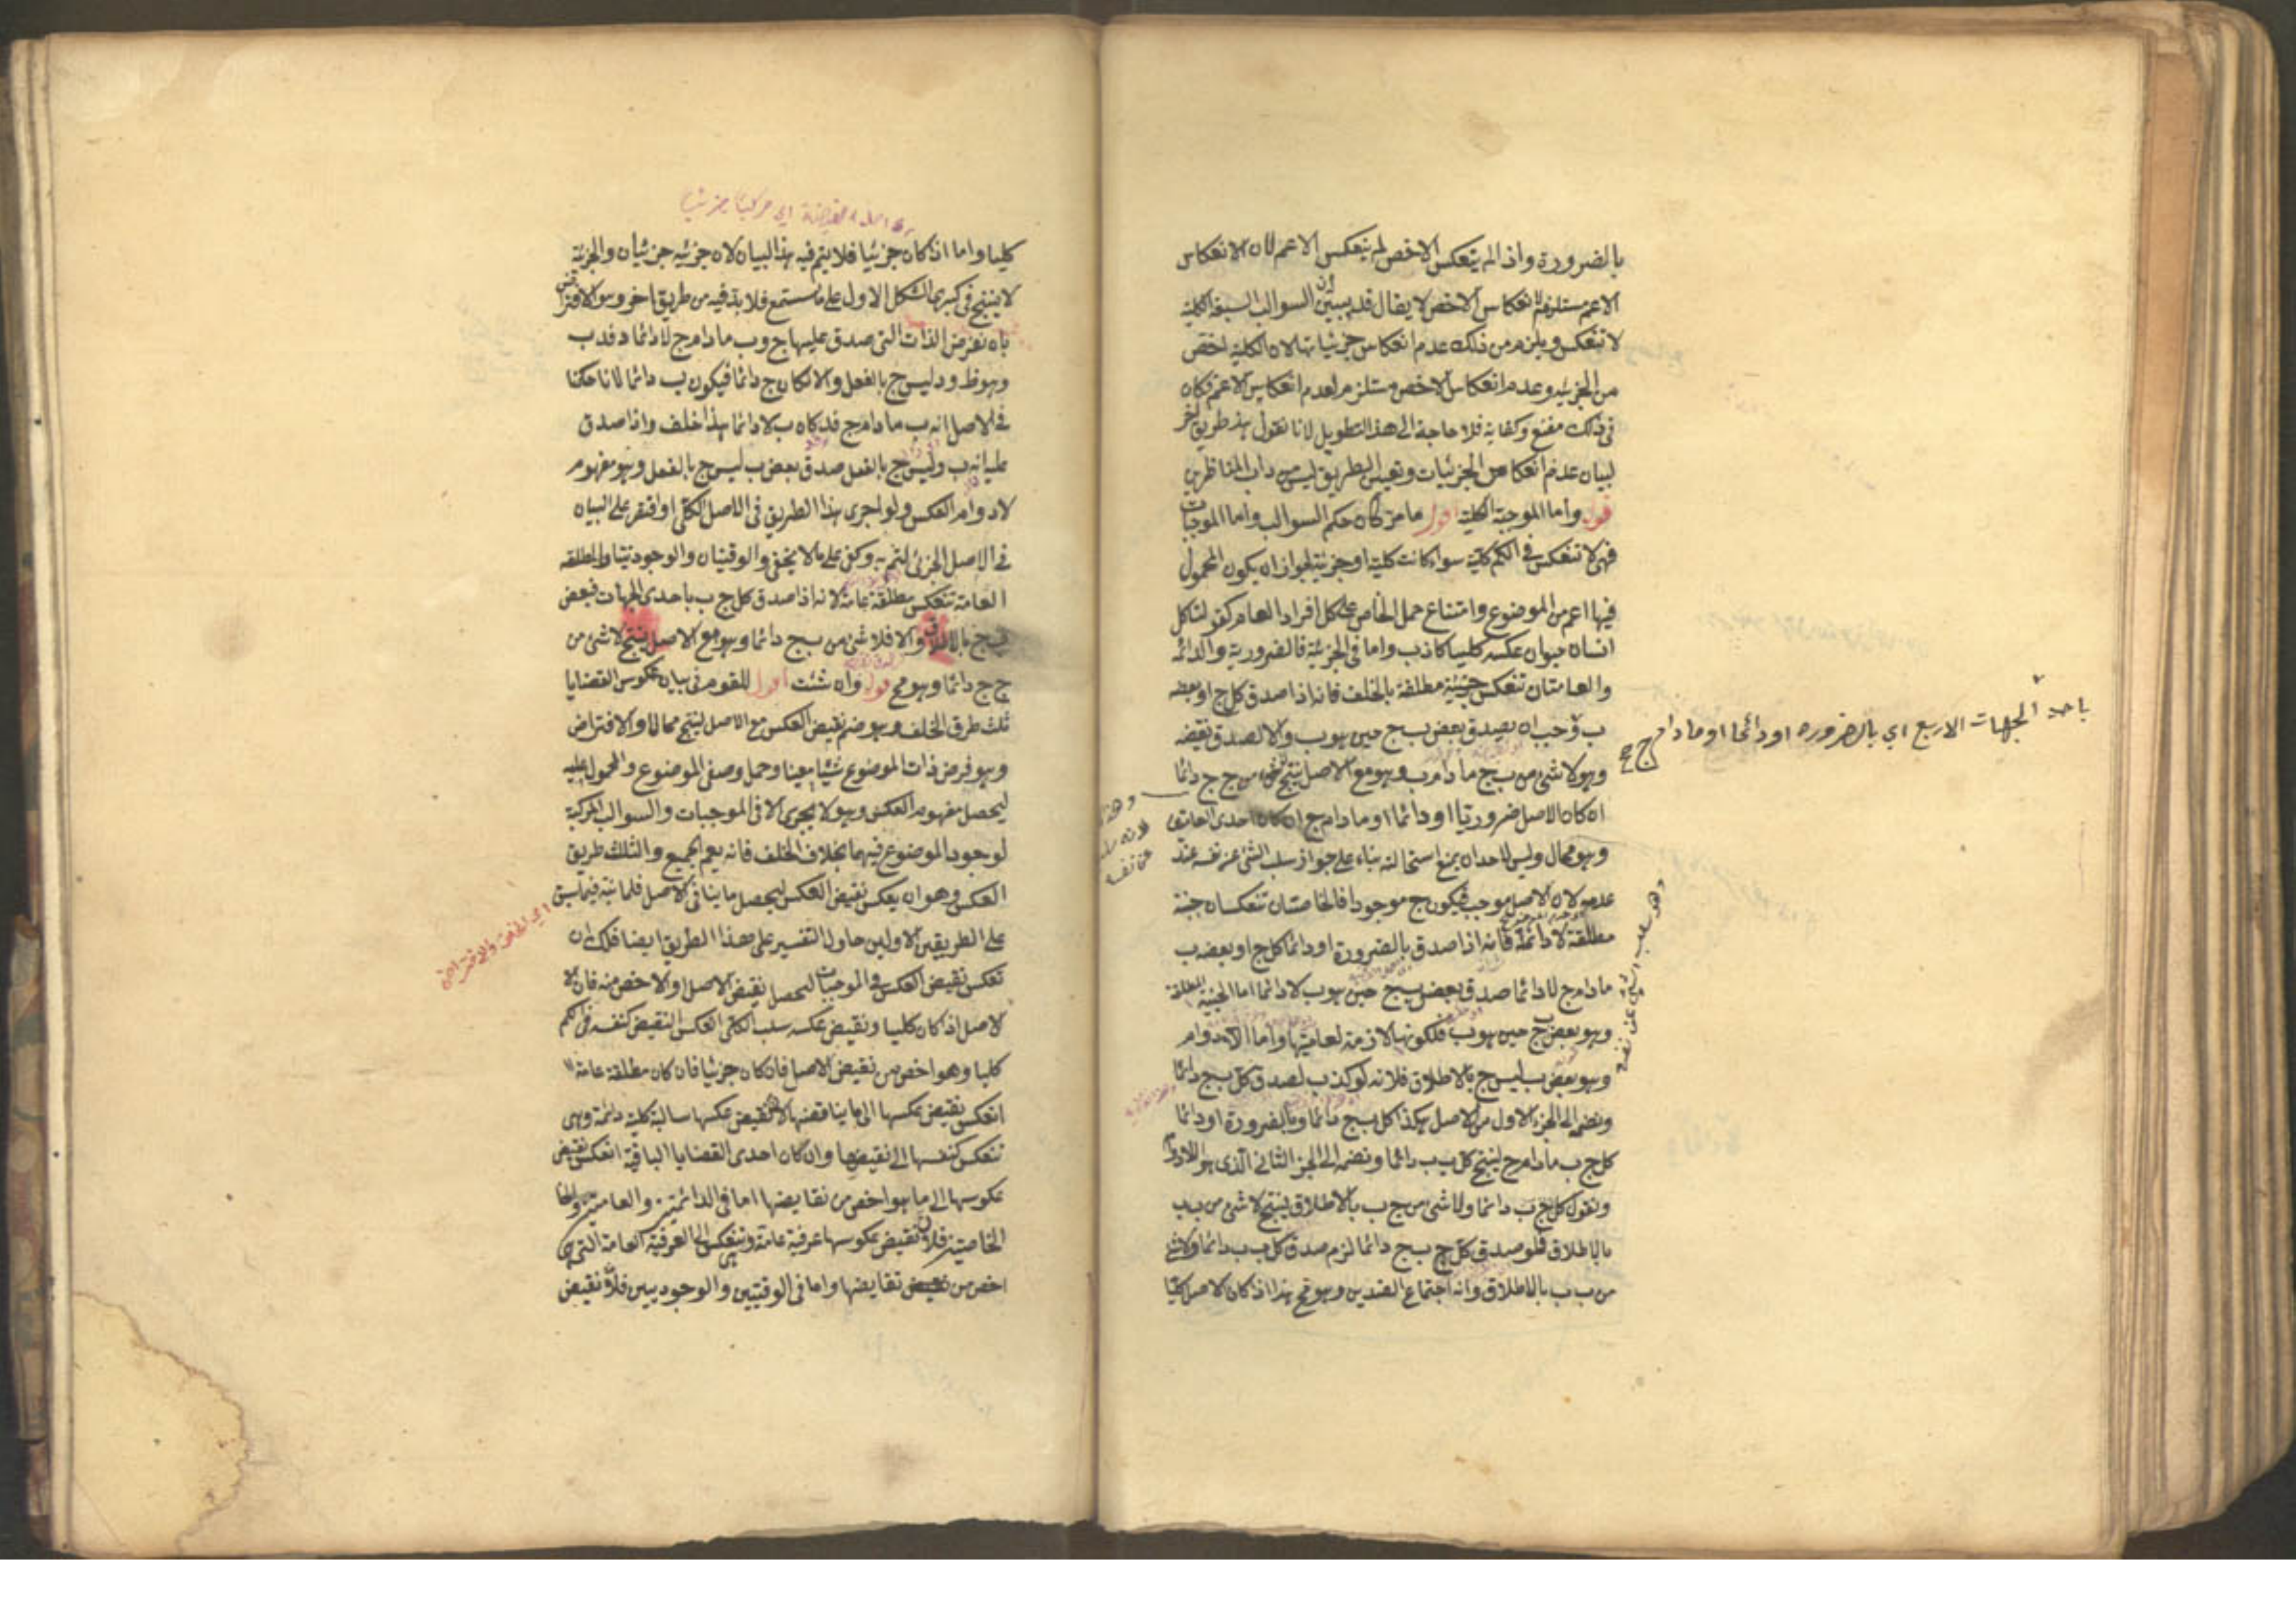 بالضرورة واذا لم ينعكس الاخص لم ينعكس الاعم لان الانعكاس
الاعم مستلزم لانعكاس الاخص لا يقال قد تبين ان السوالب السبعة الكلية
لا تنعكس ويلزم من ذلك عدم انعكاس جزئياتها لان الكلية اخص
من الجزئية وعدم انعكاس الاخص مستلزم لعدم انعكاس الاعم فكان
فى ذلك مقنع وكفاية فلا حاجة الى هذا التطويل لانا نقول هذا طريق اخر
لبيان عدم انعكاس الجزئيات وتعيين الطريق ليس من داب المناظرين
قوله واما الموجبة الكلية اقول ما مر كان حكم السوالب واما الموجبات
فهى لا تنعكس فى الكم كلية سواء كانت كلية او جزئية لجواز ان يكون المحمول
فيها اعم من الموضوع وامتناع حمل الخاص على كل افراد العام كقولنا كل
انسان حيوان عكسه كليا كاذب واما فى الجزئية فالضرورية والدائمة
والعامتان تنعكس حينية مطلقة بالخلف فانه اذا صدق كل ج او بعضه
ب وجب ان يصدق بعض ب ج حين هو ب والا لصدق نقيضه
وهو لا شئ من ب ج ما دام ب وهو مع الاصل ينتج لا شئ من ج ج دائما
ان كان الاصل ضروريا او دائما او ما دام ج ان كان احدى العامتين
وهو محال وليس لاحد ان يمنع استحالته بناء على جواز سلب الشئ عن نفسه عند
عدمه لان الاصل موجب فيكون ج موجودا فالخاصتان تنعكسان حينية
مطلقة لا دائمة فانه اذا صدق بالضرورة او دائما كل ج او بعضه ب
ما دام ج لا دائما صدق بعض ب ج حين هو ب لا دائما اما الحينية المطلقة
وهو بعض ب ج حين هو ب فلكونها لازمة لعامتيها واما اللادوام
وهو بعض ب ليس ج بالاطلاق فلانه لو كذب لصدق كل ب ج دائما
ونضمه الى الجزء الاول من الاصل هكذا كل ب ج دائما وبالضرورة او دائما
كل ج ب ما دام ج لينتج كل ب ب دائما ونضمه الى الجزء الثانى الذى هو اللادوام
ونقول كل ب ج دائما ولا شئ من ج ب بالاطلاق ينتج لا شئ من ب ب
بالاطلاق فلو صدق كل ب ج دائما لزم صدق كل ب ب دائما ولا شئ
من ب ب بالاطلاق وانه اجتماع الضدين وهو مح هذا اذا كان الاصل كليا
باحد الجهات الاربع اي بالضرورة او دائما او ما دام ج
وهو سلب الشئ عن نفسه
كليا واما اذا كان جزئيا فلا يتم فيه هذا البيان لان جزئيه جزئيان والجزئية
لا ينتج فى كبرى الشكل الاول على ما ستسمع فلا بد فيه من طريق اخر وهو الافتراض
بان نفرض الذات التى صدق عليها ج وب ما دام ج لا دائما د فد ب
وهو ظ ود ليس ج بالفعل والا لكان ج دائما فيكون ب دائما لانا حكمنا
فى الاصل انه ب ما دام ج فقد كان ب لا دائما هذا خلف واذا صدق
عليه انه ب وليس ج بالفعل صدق بعض ب ليس ج بالفعل وهو مفهوم
لادوام العكس ولو اجرى هذا الطريق فى الاصل الكلى او اقتصر على البيان
فى الاصل الجزئى لتم به وكفى على ما لا يخفى والوقتيتان والوجوديتان والمطلقة
العامة تنعكس مطلقة عامة لانه اذا صدق كل ج ب باحدى الجهات فبعض
ب ج بالاطلاق والا فلا شئ من ب ج دائما وهو مع الاصل ينتج لا شئ من
ج ج دائما وهو مح قوله وان شئت اقول للقوم فى بيان عكوس القضايا
ثلث طرق الخلف وهو ضم نقيض العكس مع الاصل لينتج محالا والافتراض
وهو فرض ذات الموضوع شيئا معينا وحمل وصفى الموضوع والمحمول عليه
ليحصل مفهوم العكس وهو لا يجرى الا فى الموجبات والسوالب المركبة
لوجود الموضوع فيهما بخلاف الخلف فانه يعم الجميع والثالث طريق
العكس وهو ان يعكس نقيض العكس ليحصل ما ينافى الاصل فلما نبه فيما سبق
على الطريقين الاولين حاول التفسير على هذا الطريق ايضا فلك ان
تعكس نقيض العكس فى الموجبات ليحصل نقيض الاصل او الاخص منه فان الا
لاصل اذا كان كليا ونقيض عكسه سلب الكلى العكس النقيض كنفسه فى الكم
كليا وهو اخص من نقيض الاصل فان كان جزئيا فان كان مطلقة عامة
انعكس نقيض عكسها الى ما يناقضها لان نقيض عكسها سالبة كلية دائمة وهى
تنعكس كنفسها الى نقيضها وان كان احدى القضايا الباقية انعكس نقيض
عكوسها الى ما هو اخص من نقايضها اما فى الدائمتين والعامتين والخا
الخاصتين فلان نقيض عكوسها عرفية عامة وتنعكس الى العرفية العامة التى هى
اخص من نقايضها واما فى الوقتيتين والوجوديتين فلان نقيض
اي الخلف والافتراض